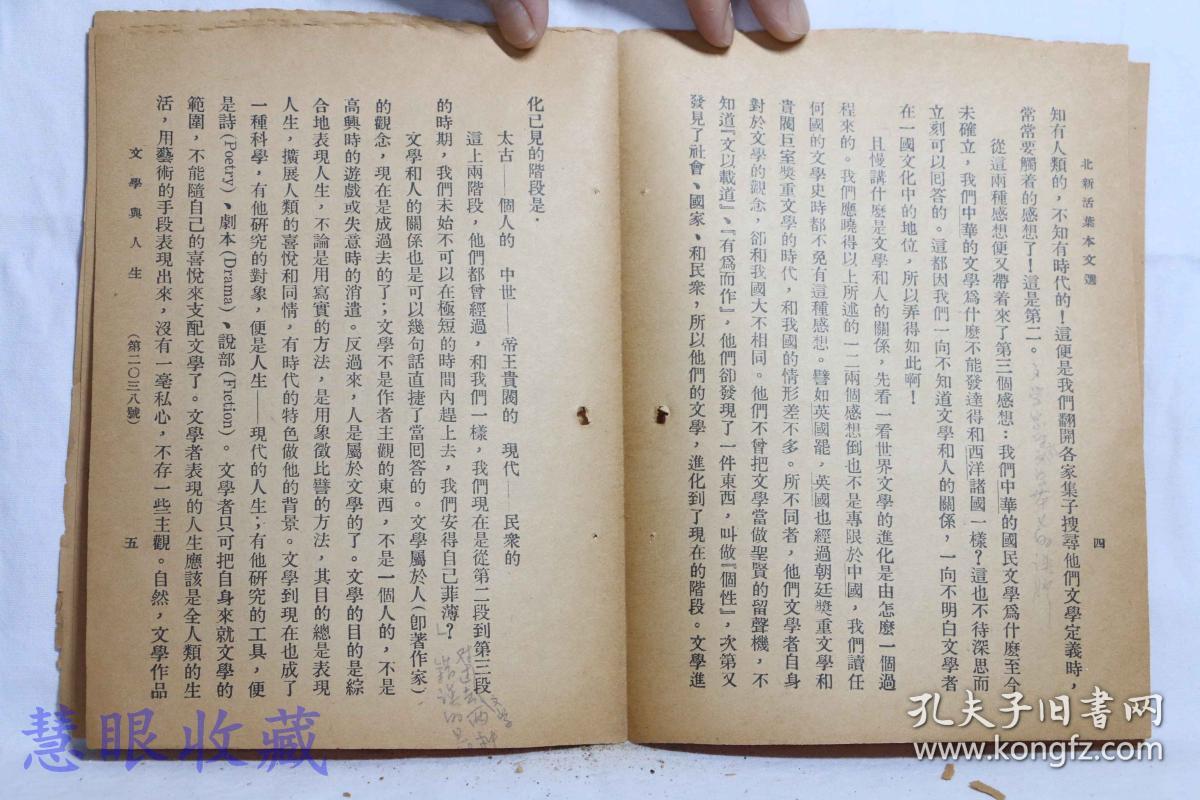 北新活葉本文選
四
知有人類的，不知有時代的！這便是我們翻開各家集子搜尋他們文學定義時，
常常要觸着的感想了！這是第二。
從這兩種感想便又帶着來了第三個感想：我們中華的國民文學爲什麼至今
未確立，我們中華的文學爲什麼不能發達得和西洋諸國一樣？這也不待深思而
立刻可以回答的。這都因我們一向不知道文學和人的關係，一向不明白文學者
在一國文化中的地位，所以弄得如此啊！
且慢講什麼是文學和人的關係，先看一看世界文學的進化是由怎麼一個過
程來的。我們應曉得以上所述的一二兩個感想倒也不是專限於中國，我們讀任
何國的文學史時都不免有這種感想。譬如英國罷，英國也經過朝廷獎重文學和
貴閥巨室獎重文學的時代，和我國的情形差不多。所不同者，他們文學者自身
對於文學的觀念，卻和我國大不相同。他們不曾把文學當做聖賢的留聲機，不
知道『文以載道』、『有爲而作』，他們卻發現了一件東西，叫做『個性』，次第又
發見了社會、國家、和民衆，所以他們的文學，進化到了現在的階段。文學進
化已見的階段是．
太古——個人的　中世——帝王貴閥的　現代——民衆的
這上兩階段，他們都曾經過，和我們一樣，我們現在是從第二段到第三段
的時期，我們未始不可以在極短的時間內趕上去，我們安得自己菲薄？
文學和人的關係也是可以幾句話直捷了當回答的。文學屬於人（卽著作家）
的觀念，現在是成過去的了；文學不是作者主觀的東西，不是一個人的，不是
高興時的遊戲或失意時的消遣。反過來，人是屬於文學的了。文學的目的是綜
合地表現人生，不論是用寫實的方法，是用象徵比譬的方法，其目的總是表現
人生，擴展人類的喜悅和同情，有時代的特色做他的背景。文學到現在也成了
一種科學，有他研究的對象，便是人生——現代的人生；有他研究的工具，便
是詩(Poetry)、劇本(Drama)、說部(Fiction)。文學者只可把自身來就文學的
範圍，不能隨自己的喜悅來支配文學了。文學者表現的人生應該是全人類的生
活，用藝術的手段表現出來，沒有一毫私心，不存一些主觀。自然，文學作品
文學與人生
（第二〇三八號）
五
慧眼收藏
孔夫子旧書网
www.kongfz.com